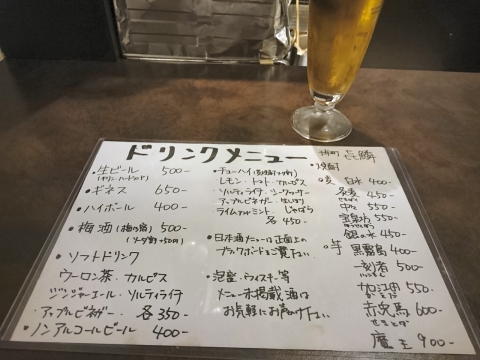 ドリンクメニュー
・生ビール 500-
・ギネス 650-
・ハイボール 400-
・梅酒 500-
(ソーダ割+50円)
・ソフトドリンク
ウーロン茶・カルピス
ジンジャーエール・ソルティライチ
アップルビネガー 各350-
・ノンアルコールビール 400-
・チューハイ
レモン・トマト・カルピス
ソルティライチ・シークヮーサー
アップルビネガー・生しぼり
ライムアルミント じゃばら
各450-
・日本酒メニューは正面上の
ブラックボードをご覧下さい。
・泡盛・ウイスキー等
メニュー未掲載酒は
お気軽にお声かけ下さい。
壱鱗
・焼酎
・麦 400-
450-
中々 550-
550-
銀の水 450-
・芋 黒霧島 400-
一刻者 500-
550-
赤兎馬 600-
せきとば
魔王 900-